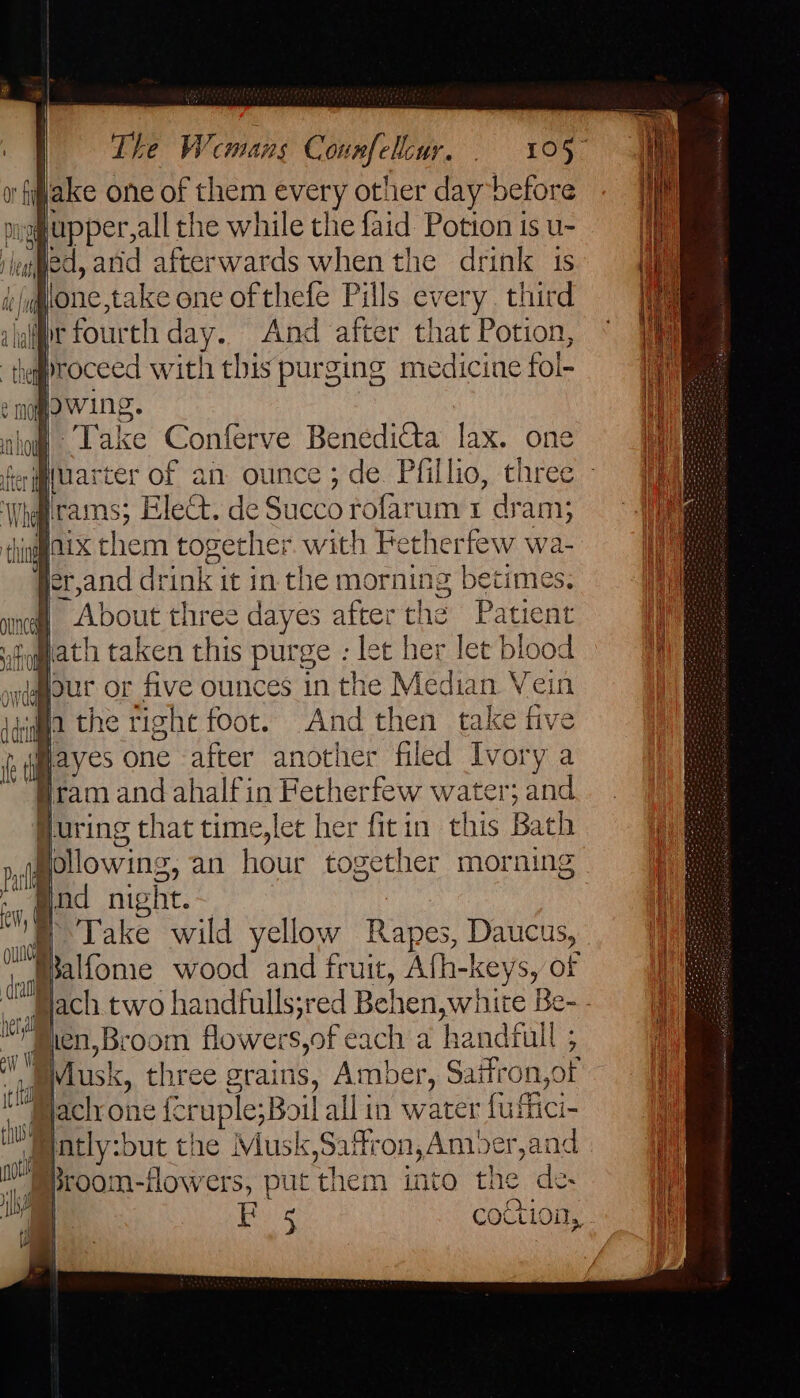 The Womans Counſellour. 105
take one of them every other day before
ſupper, all the while the ſaid Potion is u-
ſed, and afterwards when the drink is
done, take one of theſe Pills every third
or fourth day. And after that Potion,
proceed with this purging medicine fol-
lowing.
Take Conſerve Benedicta lax. one
quarter of an ounce; de Pſillio, three
drams; Elect. de Succo roſarum 1 dram;
mix them together with Fetherfew wa-
ter, and drink it in the morning betimes.
About three dayes after the Patient
hath taken this purge : let her let blood
four or five ounces in the Median Vein
in the right foot. And then take five
dayes one after another filed Ivory a
dram and a half in Fetherfew water; and
during that time, let her ſit in this Bath
following, an hour together morning
and night.
Take wild yellow Rapes, Daucus,
Balſome wood and fruit, Aſh-keys, of
each two handfulls; red Behen, white Be-
hen, Broom flowers, of each a handfull ;
Musk, three grains, Amber, Saffron, of
each one ſcruple; Boil all in water ſuffici-
ently: but the Musk, Saffron, Amber, and
Broom-flowers, put them into the de-
F 5 coction,